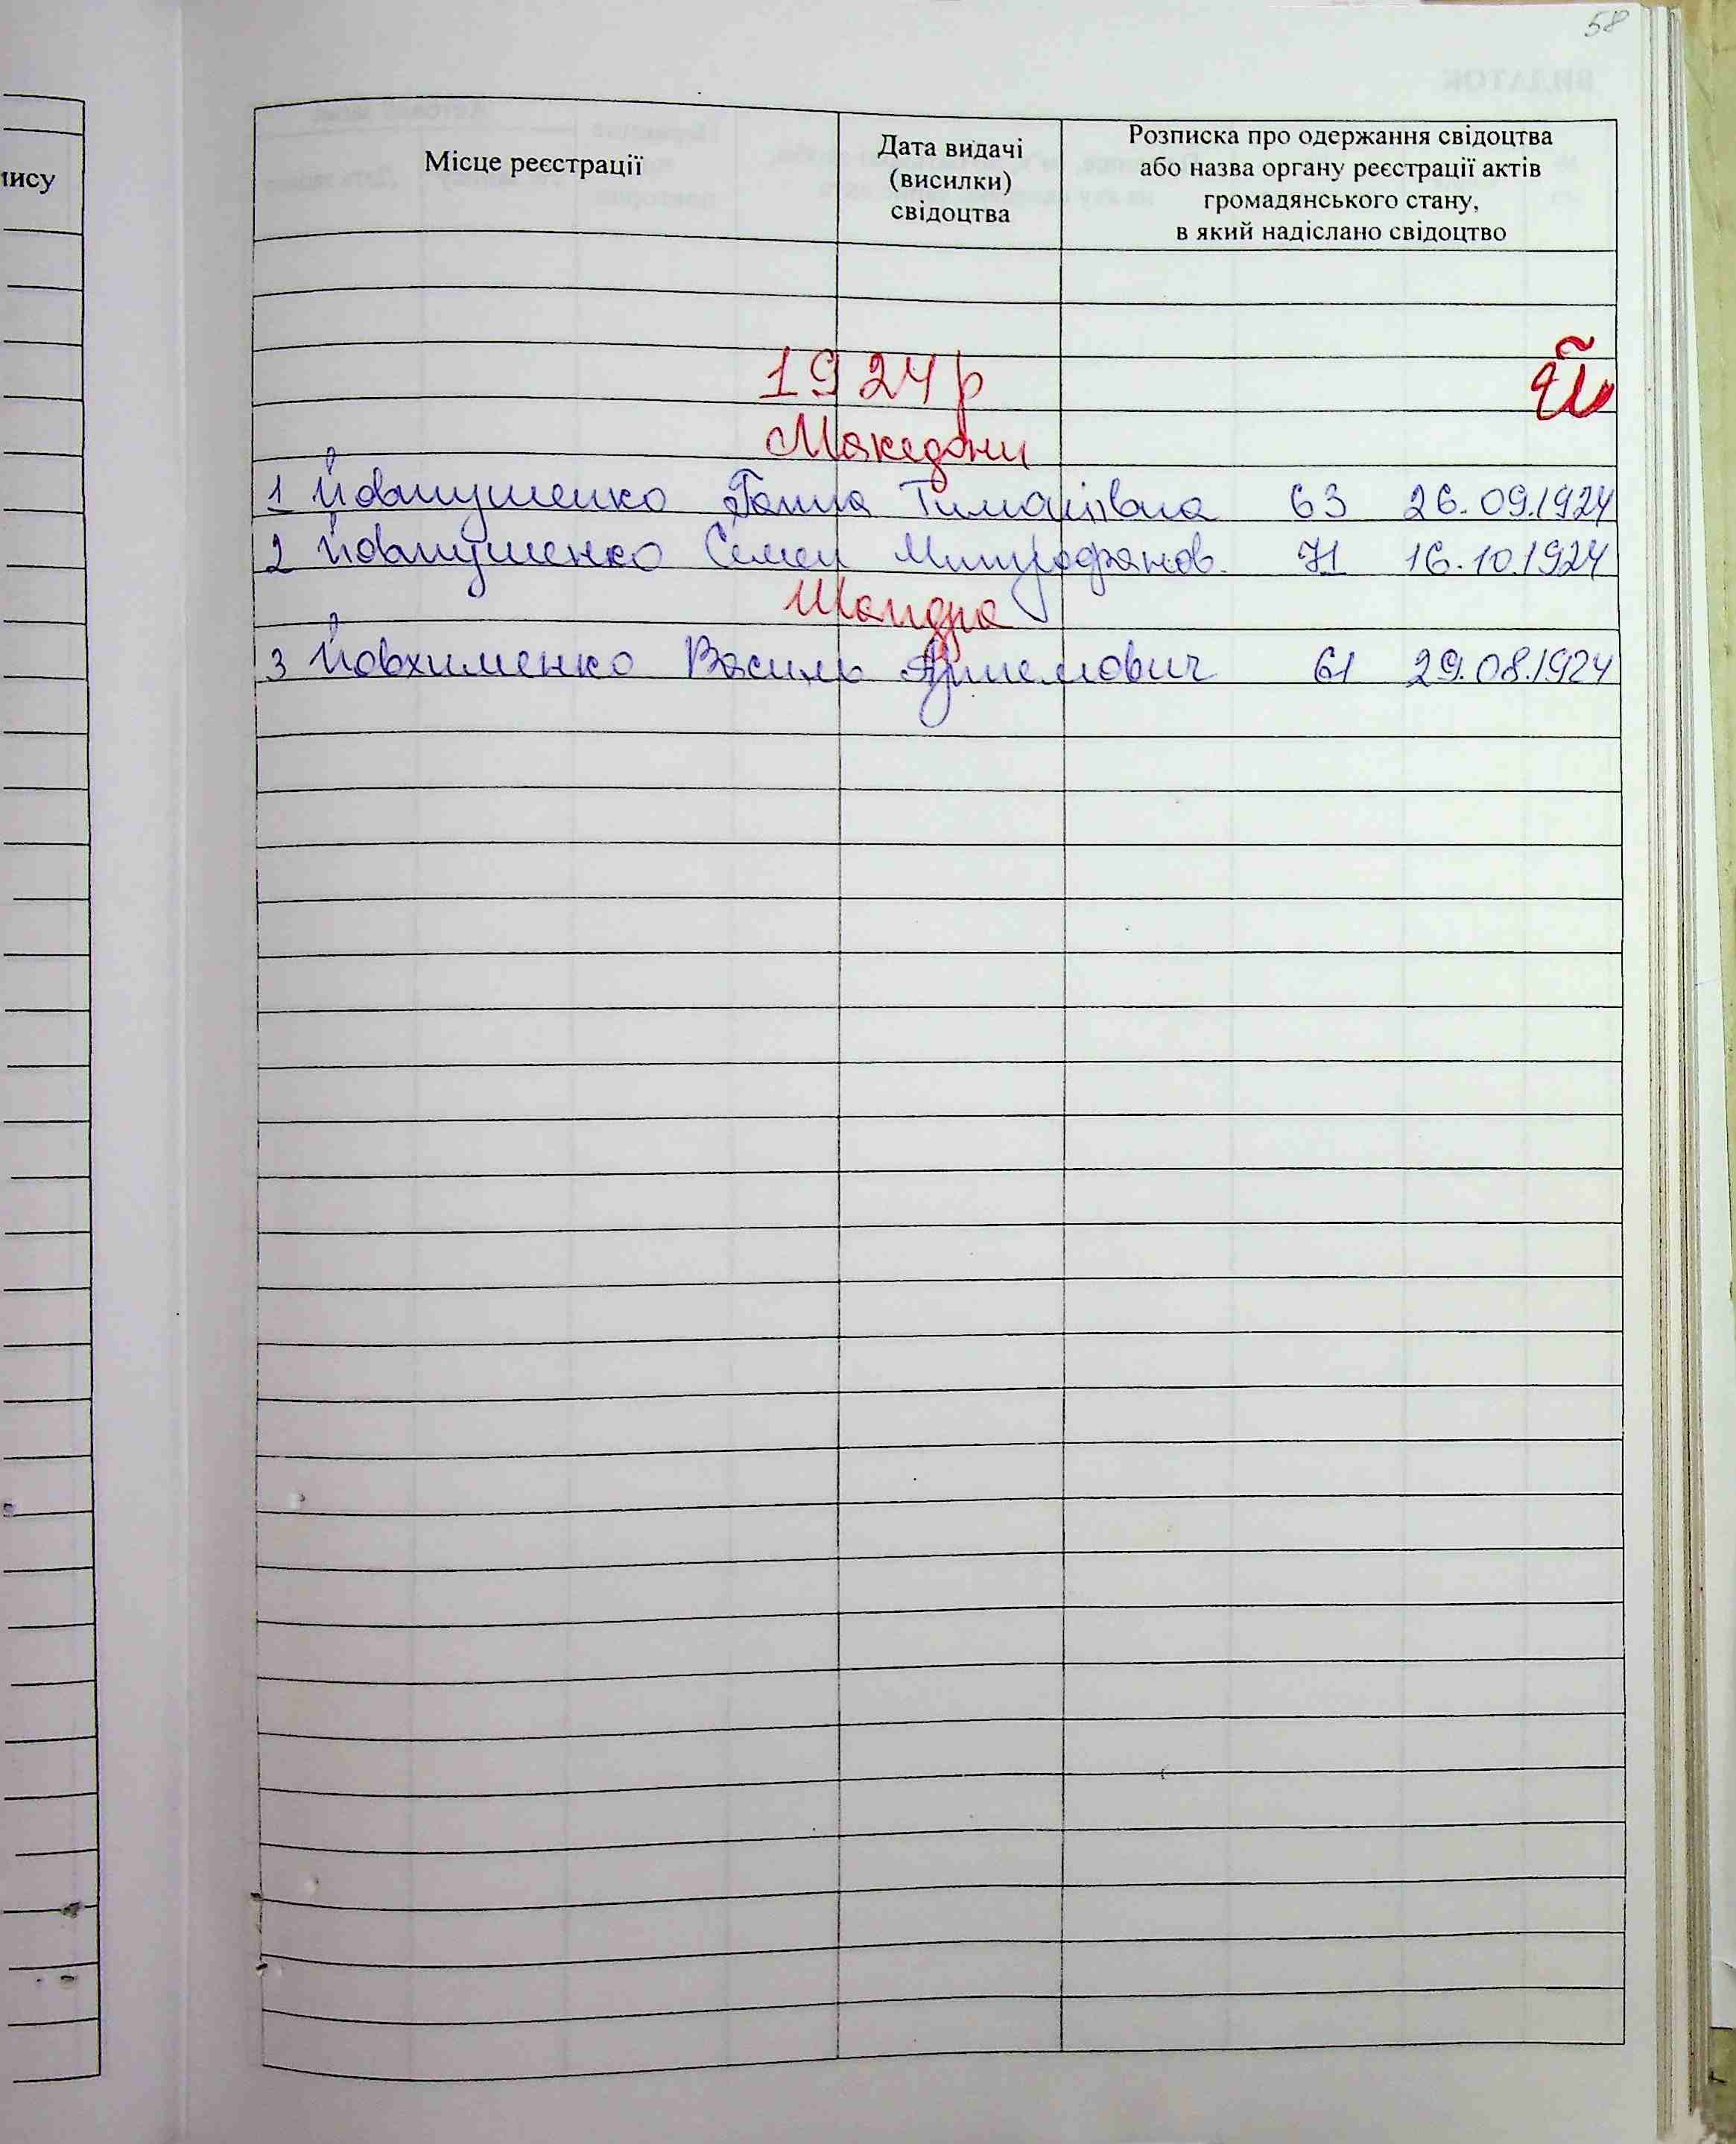 58
пису
Місце реєстрації
Дата видачі
(висилки)
свідоцтва
Розписка про одержання свідоцтва
або назва органу реєстрації актів
громадянського стану,
в який надіслано свідоцтво
1924р
Й
Македони
1 Йовтушенко Ганна Тимофіївна 63 26.09.1924
2 Йовтушенко Семен Митрофанов. 71 16.10.1924
Шандра
3 Йовхименко Василь Артемович 61 29.08.1924